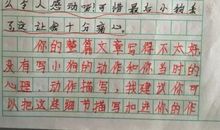 么令人感动呀!可惜最后小狗丢
了,这让我十分痛心。
你的整篇文章写得不太好,
没有写小狗的动作和你当时的
心理、动作描写,我建议你可
以把这些细节描写加进你的作